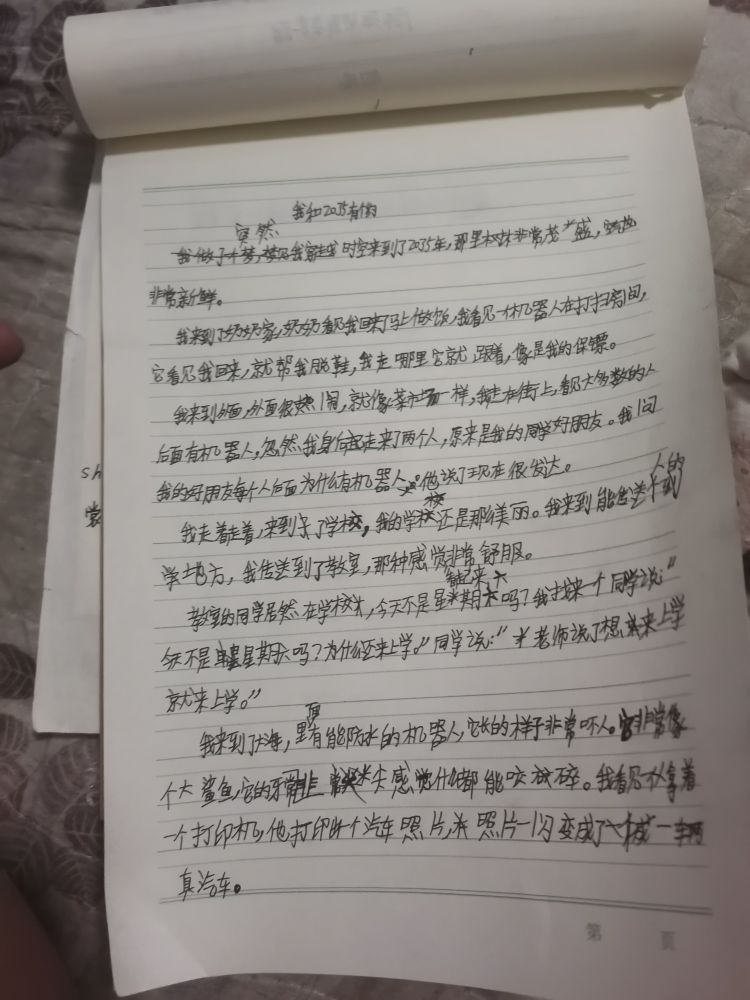 我和2035有个约
突然
我做了个梦,梦见我穿越时空来到了2035年,那里树林非常茂盛,空气
非常新鲜。
我来到了奶奶家,奶奶看见我回来了马上做饭,我看见一个机器人在打扫房间,
它看见我回来,就帮我脱鞋,我走哪里它就跟着,像是我的保镖。
我来到外面,外面很热闹,就像菜市场一样,我走在街上,看见大多数的人
后面有机器人,忽然我身后走来了两个人,原来是我的同学好朋友。我问
我的好朋友每个人后面为什么有机器人。他说了现在很发达。
我走着走着,来到了学校,我的学校还是那么美丽。我来到能传送人的
地方,我传送到了教室,那种感觉非常舒服。
教室的同学居然在学校,今天不是星期六吗?我找来一个同学说:“
今天不是星期六吗?为什么还来上学。”同学说:“老师说了想来上学
就来上学。”
我来到了大海,里面有能防水的机器人,它长的样子非常吓人。它非常像
个大鲨鱼,它的牙非常尖感觉什么都能咬碎。我看见个人拿着
一个打印机,他打印个汽车照片,照片一闪变成了一辆
真汽车。
第 页
sh